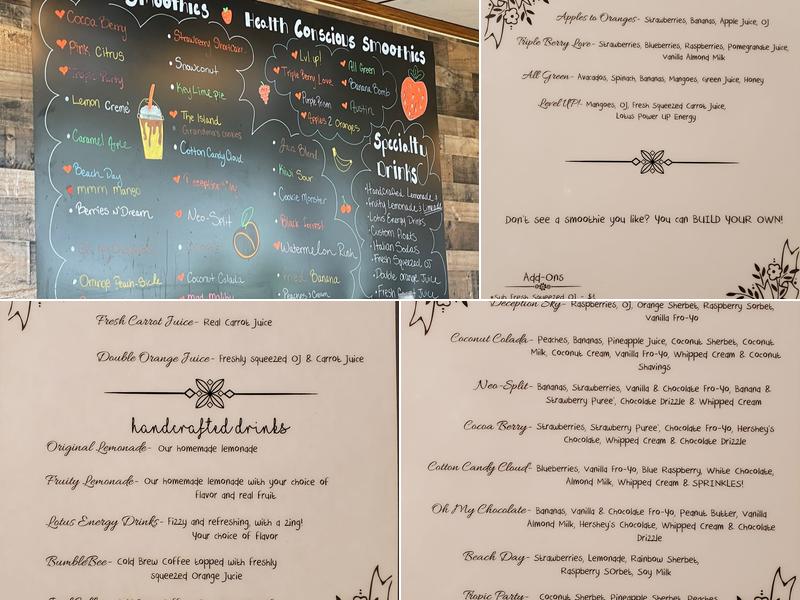 Smoothies
Cocoa Berry
Pink Citrus
Tropic Party
Lemon Creme'
Caramel Apple
Beach Day
mmm mango
Berries N' Dream
Orange Peach-Sicle
Strawberry Shortcake
Snowconut
Key Lime pie
The Island
Grandma's cookies
Cotton Candy Cloud
Neo-Split
Coconut Colada
mad malibu
Java Blend
Kiwi Sour
Cookie Monster
Black Forrest
Watermelon Rush
Fried Banana
Peaches N Cream
Health Conscious Smoothies
Lvl up!
Triple Berry Love
Purple Brown
Apples 2 Oranges
All Green
Banana Bomb
Austin
Specialty
Drinks
Handcrafted Lemonade
Fruity Lemonade &
Lotus Energy Drinks
Custom Floats
Italian Sodas
Fresh Squeezed OJ
Double orange Juice
Fresh Carrot Juice
Apples to Oranges- Strawberries, Bananas, Apple Juice, OJ
Triple Berry Love- Strawberries, Blueberries, Raspberries, Pomegranate Juice,
Vanilla Almond Milk
All Green- Avacados, Spinach, Bananas, Mangoes, Green Juice, Honey
Level UP!!- Mangoes, OJ, Fresh Squeezed Carrot Juice,
Lotus Power UP Energy
Don't see a smoothie you like? You can BUILD YOUR OWN!
Add-Ons
•Sub Fresh Squeezed OJ - $1
Fresh Carrot Juice- Real Carrot Juice
Double Orange Juice- Freshly squeezed OJ & Carrot Juice
handcrafted drinks
Original Lemonade- Our homemade lemonade
Fruity Lemonade- Our homemade lemonade with your choice of
flavor and real fruit
Lotus Energy Drinks- Fizzy and refreshing, with a zing!
Your choice of flavor
BumbleBee- Cold Brew Coffee topped with freshly
squeezed Orange Jucie
Deception Sky- Raspberries, OJ, Orange Sherbet, Raspberry Sorbet,
Vanilla Fro-Yo
Coconut Colada- Peaches, Bananas, Pineapple Juice, Coconut Sherbet, Coconut
Milk, Coconut Cream, Vanilla Fro-Yo, Whipped Cream & Coconut
Shavings
Neo-Split- Bananas, Strawberries, Vanilla & Chocolate Fro-Yo, Banana &
Strawberry Puree', Chocolate Drizzle & Whipped Cream
Cocoa Berry- Strawberries, Strawberry Puree', Chocolate Fro-Yo, Hershey's
Chocolate, Whipped Cream & Chocolate Drizzle
Cotton Candy Cloud- Blueberries, Vanilla Fro-Yo, Blue Raspberry, White Chocolate,
Almond Milk, Whipped Cream & SPRINKLES!
Oh My Chocolate- Bananas, Vanilla & Chocolate Fro-Yo, Peanut Butter, Vanilla
Almond Milk, Hershey's Chocolate, Whipped Cream & Chocolate
Drizzle
Beach Day- Strawberries, Lemonade, Rainbow Sherbet,
Raspberry SOrbet, Soy Milk
Tropic Party- Coconut Sherbet, Pineapple Sherbet, Peaches,